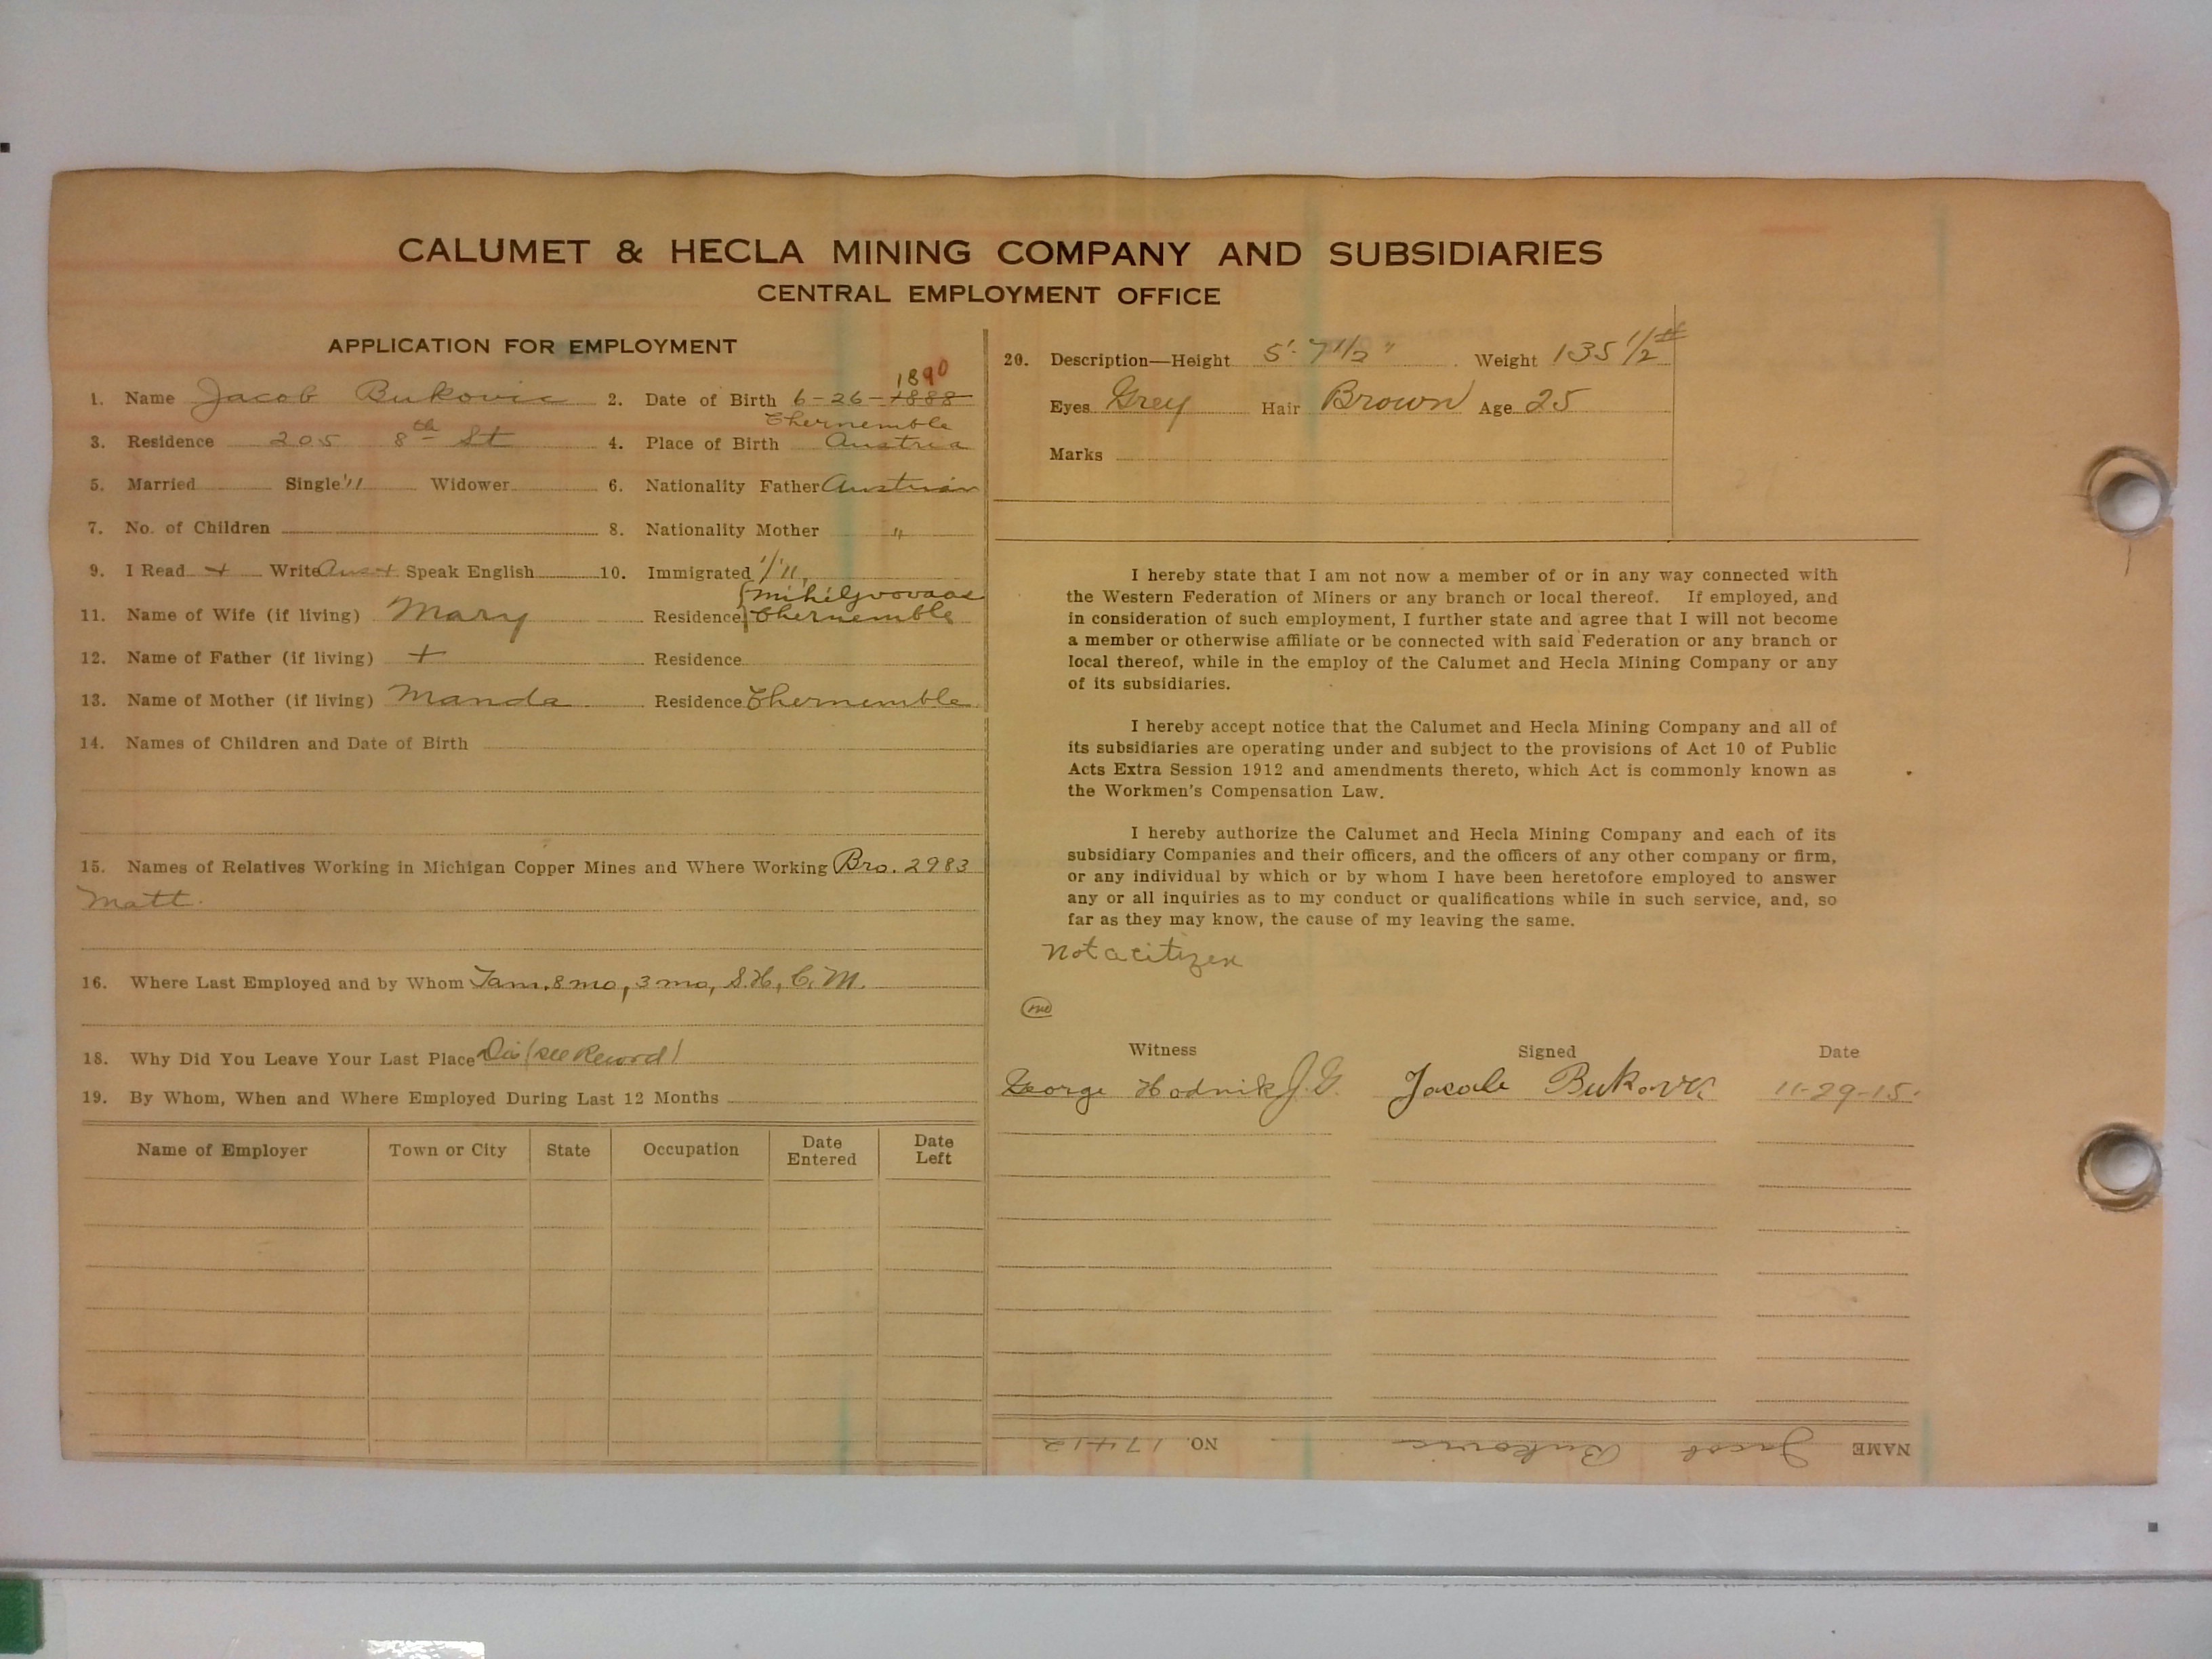 CALUMET & HECLA MINING COMPANY AND SUBSIDIARIES
CENTRAL EMPLOYMENT OFFICE
APPLICATION FOR EMPLOYMENT
1890
1. Name Jacob Bukovic 2. Date of Birth 6-26-1888
Chernemble
3. Residence 205 8th St 4. Place of Birth Austria
5. Married Single "/1 Widower 6. Nationality Father Austrian
7. No. of Children 8. Nationality Mother "
9. I Read + Write Aus + Speak English 10. Immigrated 1/'11
11. Name of Wife (if living) Mary Residence Chernemble
12. Name of Father (if living) + Residence
13. Name of Mother (if living) Manda Residence Chernemble
14. Names of Children and Date of Birth
15. Names of Relatives Working in Michigan Copper Mines and Where Working Bro. 2983
Matt.
16. Where Last Employed and by Whom Tam. 8 mo, 3 mo, S.H., C. M.
18. Why Did You Leave Your Last Place Dis (see Record)
19. By Whom, When and Where Employed During Last 12 Months
Name of Employer Town or City State Occupation Date Entered Date Left
20. Description—Height 5'-7 1/2" Weight 135 1/2 #
Eyes Grey Hair Brown Age 25
Marks
I hereby state that I am not now a member of or in any way connected with
the Western Federation of Miners or any branch or local thereof. If employed, and
in consideration of such employment, I further state and agree that I will not become
a member or otherwise affiliate or be connected with said Federation or any branch or
local thereof, while in the employ of the Calumet and Hecla Mining Company or any
of its subsidiaries.
I hereby accept notice that the Calumet and Hecla Mining Company and all of
its subsidiaries are operating under and subject to the provisions of Act 10 of Public
Acts Extra Session 1912 and amendments thereto, which Act is commonly known as
the Workmen's Compensation Law.
I hereby authorize the Calumet and Hecla Mining Company and each of its
subsidiary Companies and their officers, and the officers of any other company or firm,
or any individual by which or by whom I have been heretofore employed to answer
any or all inquiries as to my conduct or qualifications while in such service, and, so
far as they may know, the cause of my leaving the same.
Not a citizen
Witness Signed Date
George Hodnik J.G. Jacob Bukovic 11-29-15.
NAME Jacob Bukovic NO. 17412